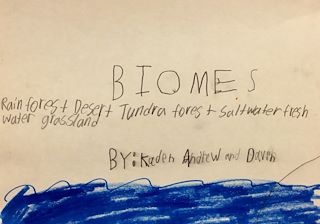 BIOMES
Rain forest Desert Tundra forest saltwater fresh
water grassland
BY: Kaden Andrew and Davin